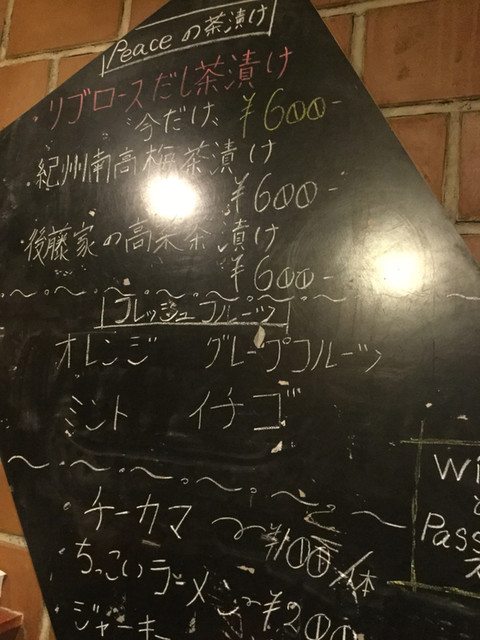 Peaceの茶漬け
・リブロースだし茶漬け
今だけ ¥600-
紀州南高梅茶漬け
¥600-
後藤家の高菜茶漬け
¥600-
フレッシュフルーツ
オレンジ グレープフルーツ
ミント イチゴ
・チーカマ
〜¥100/本
・ちっこいラーメン
〜¥200
・ジャーキー
Pass